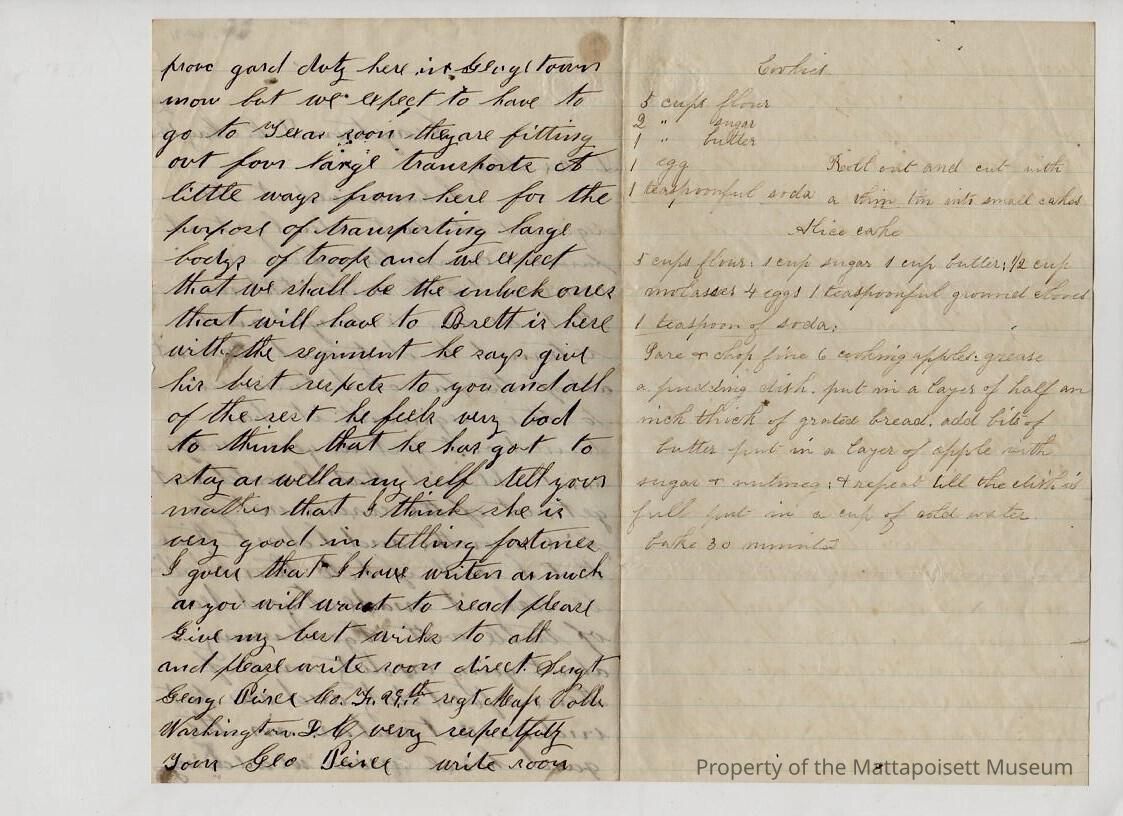 prove gard doty here in Georgetown
now but we expect to have to
go to Texas soon they are fitting
out four large transports A
little ways from here for the
purpose of transporting large
bodys of troops and we expect
that we shall be the unluck ones
that will have to Brett is here
with the regiment he says give
his best respects to you and all
of the rest he feels very bad
to think that he has got to
stay as well as my self tell your
mother that I think she is
very good in telling fortunes
I guess that I have writen as much
as you will want to read please
Give my best wishs to all
and please write soon direct Sergt
George Peirce Co. H. 29th regt Mass Volls
Washington D. C. very respectfully
Your Geo Peirce write soon
Cookies
5 cups flour
2 " sugar
1 " butter
1 egg
1 teaspoonful soda
Roll out and cut with
a thin tin into small cakes
Slice cake
5 cups flour; 1 cup sugar 1 cup butter; 1/2 cup
molasses 4 eggs 1 teaspoonful ground cloves
1 teaspoon of soda;
Pare & chop fine 6 cooking apples: grease
a pudding dish. put in a layer of half an
inch thick of grated bread. add bits of
butter put in a layer of apple with
sugar & nutmeg; & repeat till the dish is
full put in a cup of cold water
bake 30 minuts
Property of the Mattapoisett Museum